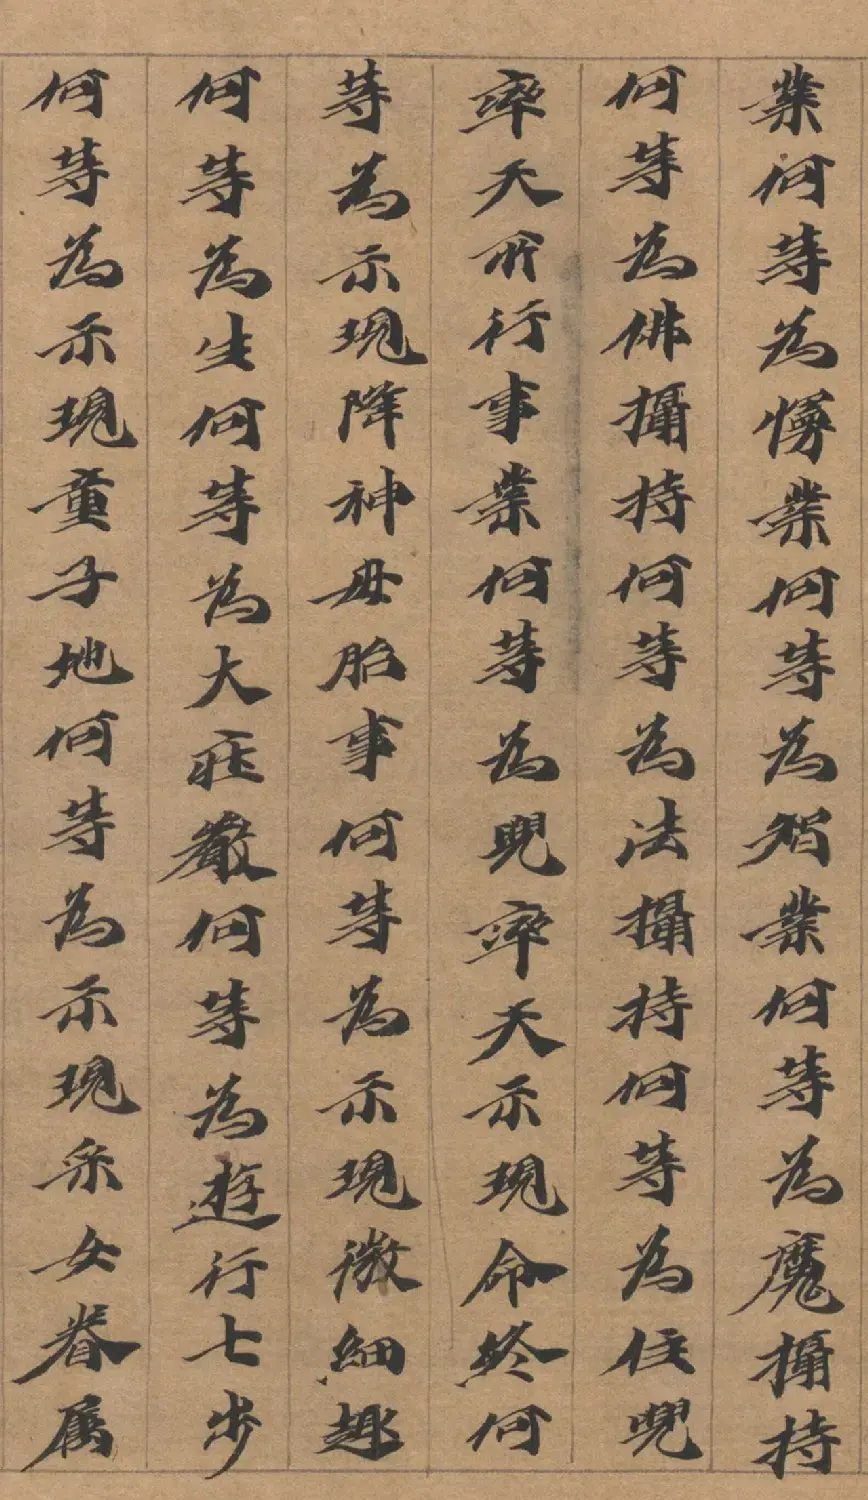 業何等為慢業何等為智業何等為魔攝持
何等為佛攝持何等為法攝持何等為住兜
率天所行事業何等為兜率天示現命終何
等為示現降神母胎事何等為示現微細趣
何等為生何等為大莊嚴何等為遊行七步
何等為示現童子地何等為示現采女眷属